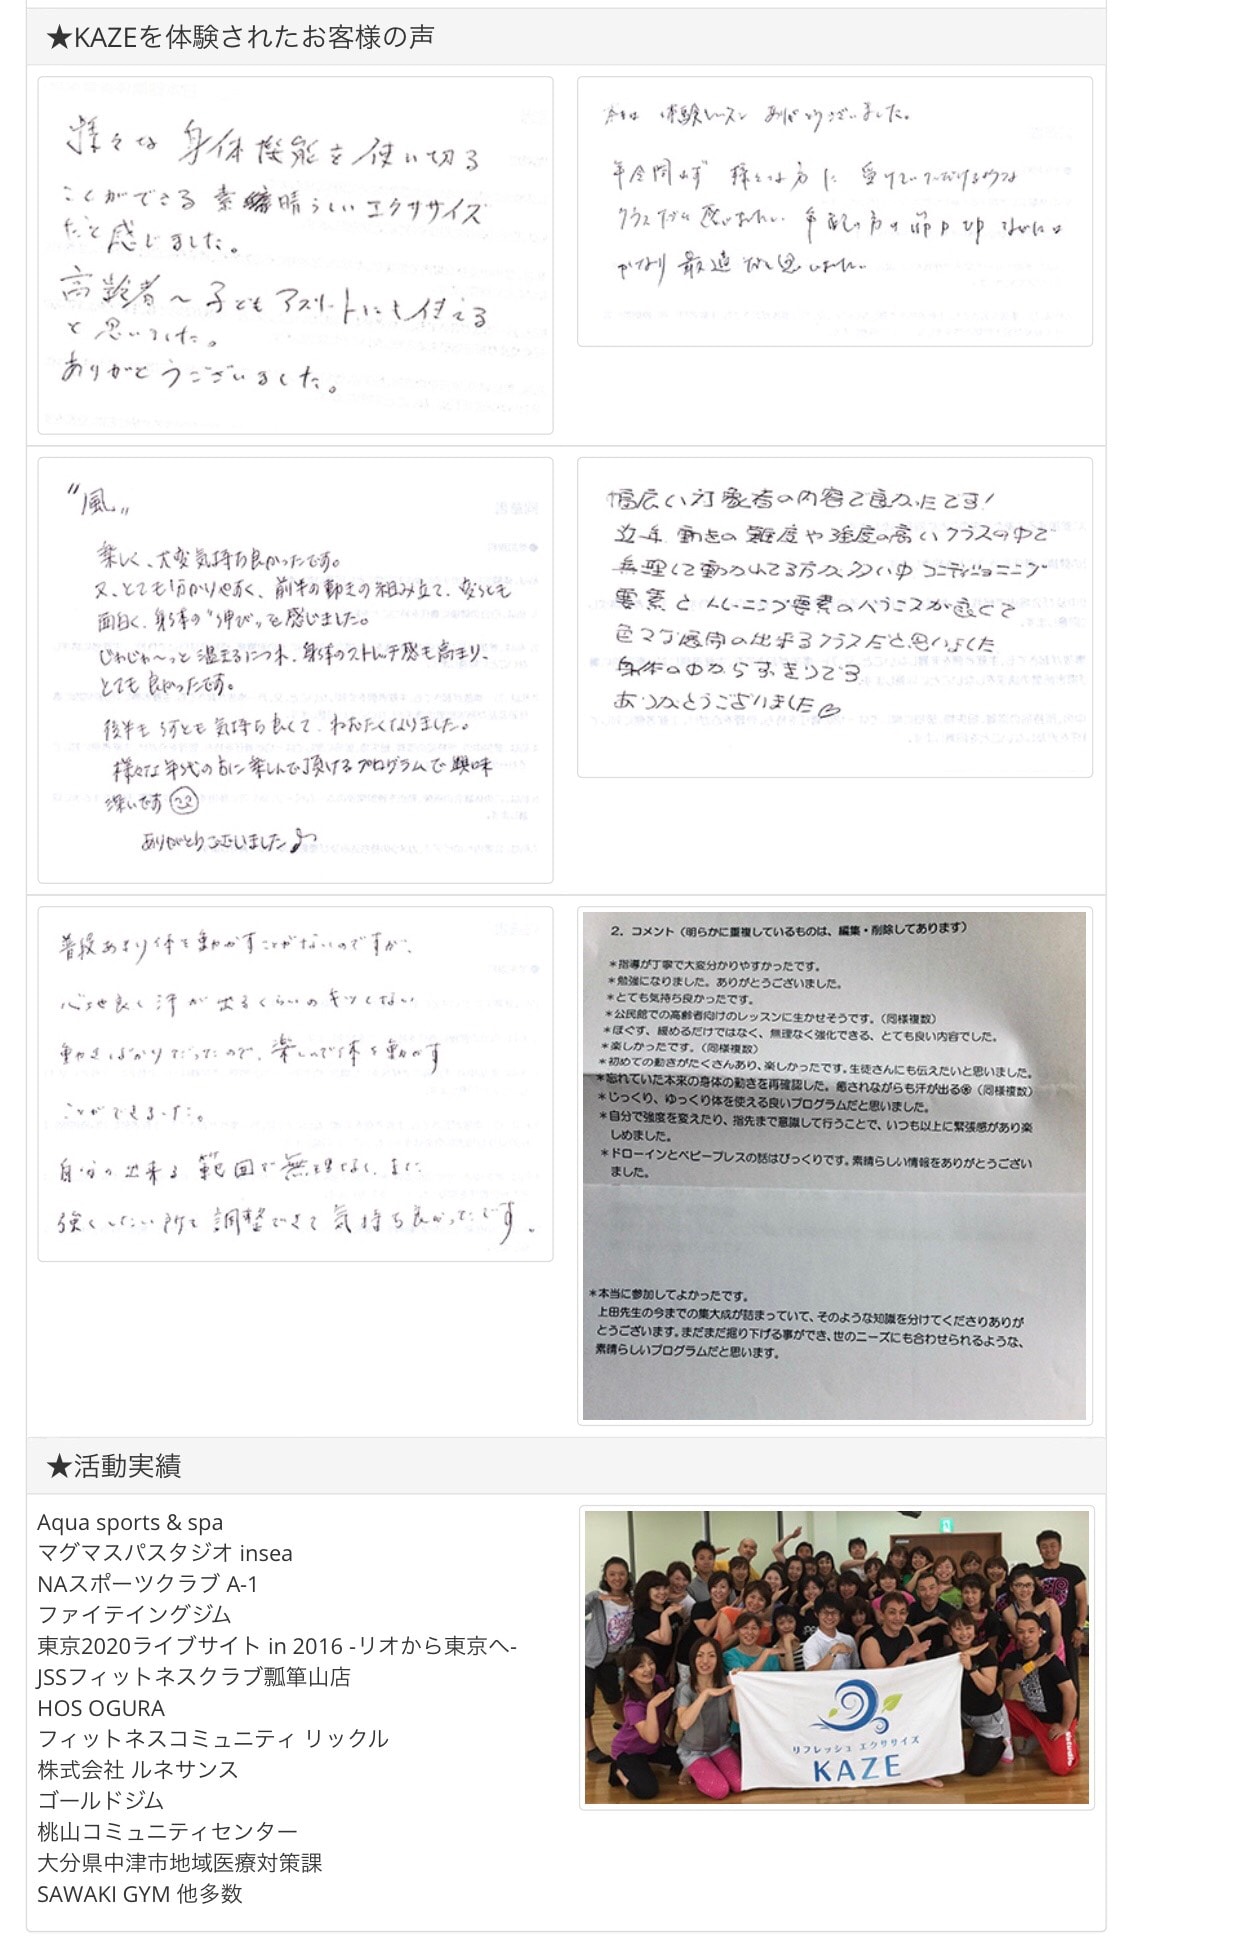 ★KAZEを体験されたお客様の声
様々な身体機能を使い切る
ことができる素晴らしいエクササイズ
だと感じました。
高齢者〜子どもアスリートにも使える
と思いました。
ありがとうございました。
本日は 体験レッスン ありがとうございました。
年令問わず 様々な方に 受けていただけるような
クラスだなと感じました。年配の方の
かなり最適だと思いました。
"風"
楽しく、大変気持ち良かったです。
又、とても分かりやすく、前半の動きの組み立て、変化も
面白く、身体の"伸び"を感じました。
じわじわ〜っと温まるにつれ、身体のストレッチ感も高まり、
とても良かったです。
後半も とても気持ち良くて、ねむたくなりました。
様々な年代の方に楽しんで頂けるプログラムで興味
深いです
ありがとうございました♪
幅広い対象者の内容で良かったです!
近年、動きの難度や強度の高いクラスの中で
無理して動かれてる方が多い中 コンディショニング
要素とトレーニング要素のバランスが良くて
色々な展開の出来るクラスだと思いました
身体の中からすっきりです
ありがとうございました
普段あまり体を動かすことがないのですが、
心地良く汗が出るくらいのキツくない
動きばかりだったので、楽しんで体を動かす
ことができました。
自分の出来る範囲で無理なく、また
強くしたい所を調整できて気持ち良かったです。
2. コメント（明らかに重複しているものは、編集・削除してあります）
＊指導が丁寧で大変分かりやすかったです。
＊勉強になりました。ありがとうございました。
＊とても気持ち良かったです。
＊公民館での高齢者向けのレッスンに生かせそうです。（同様複数）
＊ほぐす、緩めるだけではなく、無理なく強化できる、とても良い内容でした。
＊楽しかったです。（同様複数）
＊初めての動きがたくさんあり、楽しかったです。生徒さんにも伝えたいと思いました。
＊忘れていた本来の身体の動きを再確認した。癒されながらも汗が出る（同様複数）
＊じっくり、ゆっくり体を使える良いプログラムだと思いました。
＊自分で強度を変えたり、指先まで意識して行うことで、いつも以上に緊張感があり楽
しめました。
＊ドローインとベビーブレスの話はびっくりです。素晴らしい情報をありがとうござい
ました。
＊本当に参加してよかったです。
上田先生の今までの集大成が詰まっていて、そのような知識を分けてくださりありが
とうございます。まだまだ掘り下げる事ができ、世のニーズにも合わせられるような、
素晴らしいプログラムだと思います。
★活動実績
Aqua sports & spa
マグマスパスタジオ insea
NAスポーツクラブ A-1
ファイテイングジム
東京2020ライブサイト in 2016 -リオから東京へ-
JSSフィットネスクラブ瓢箪山店
HOS OGURA
フィットネスコミュニティ リックル
株式会社 ルネサンス
ゴールドジム
桃山コミュニティセンター
大分県中津市地域医療対策課
SAWAKI GYM 他多数
リフレッシュ エクササイズ
KAZE